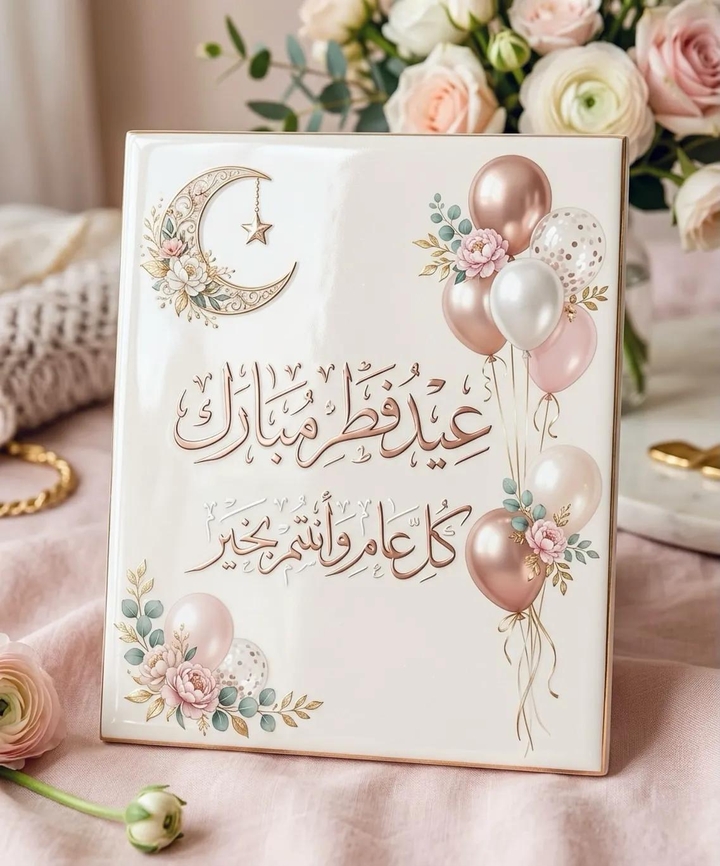 عِيْدُ فِطْرٍ مُبَارَك
كُلّ عَام وَأَنتُم بِخَيْر